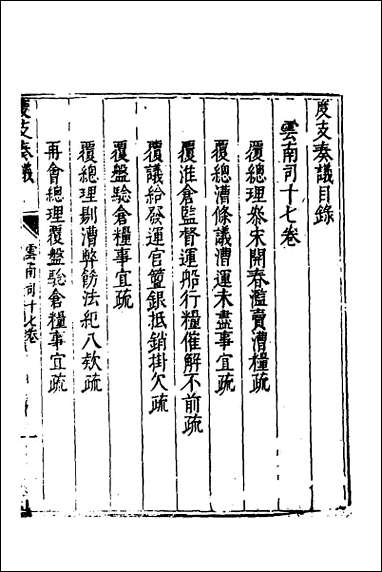 度支奏議目錄
雲南司十七卷
覆總理叅宋開春濫賣漕糧疏
覆總漕條議漕運未盡事宜疏
覆淮倉監督運船行糧催解不前疏
覆議給發運官簍銀抵銷掛欠疏
覆盤驗倉糧事宜疏
覆總理剔漕弊飭法紀八欵疏
再會總理覆盤驗倉糧事宜疏
度支奏議
雲南司十七卷